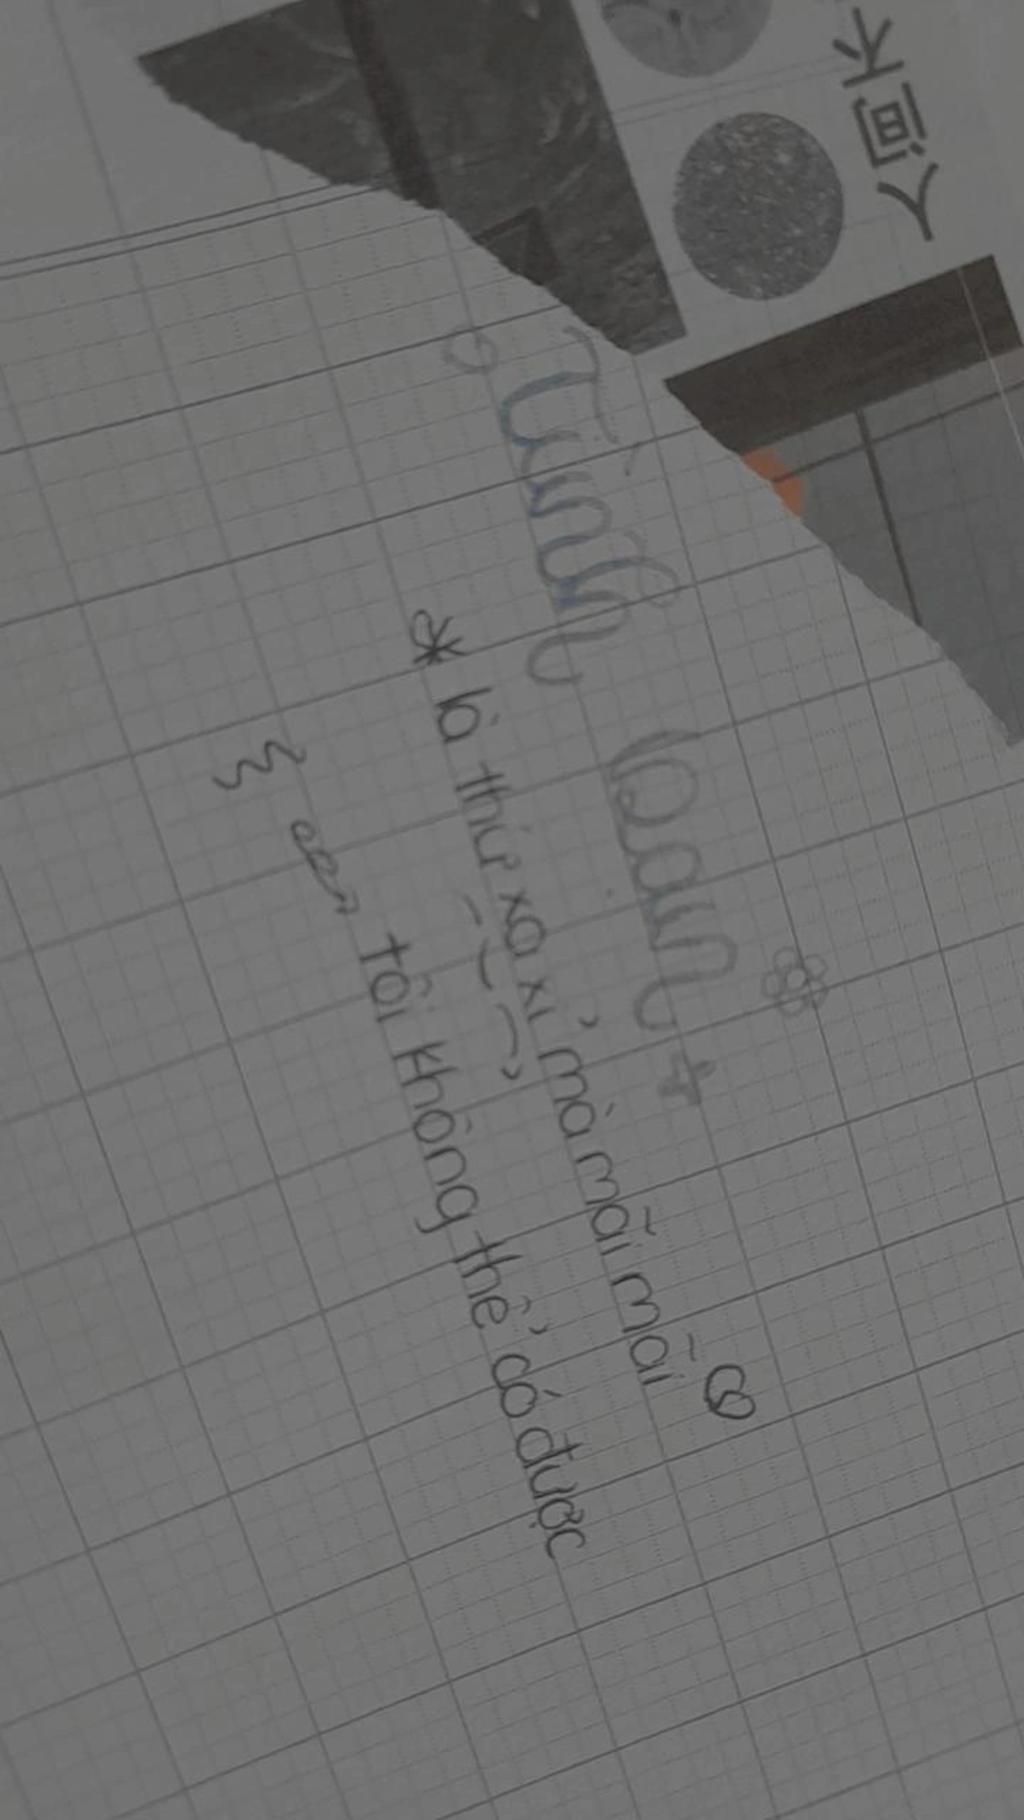 人间不
Tình bạn
là thứ xa xỉ mà mãi mãi
tôi không thể có được